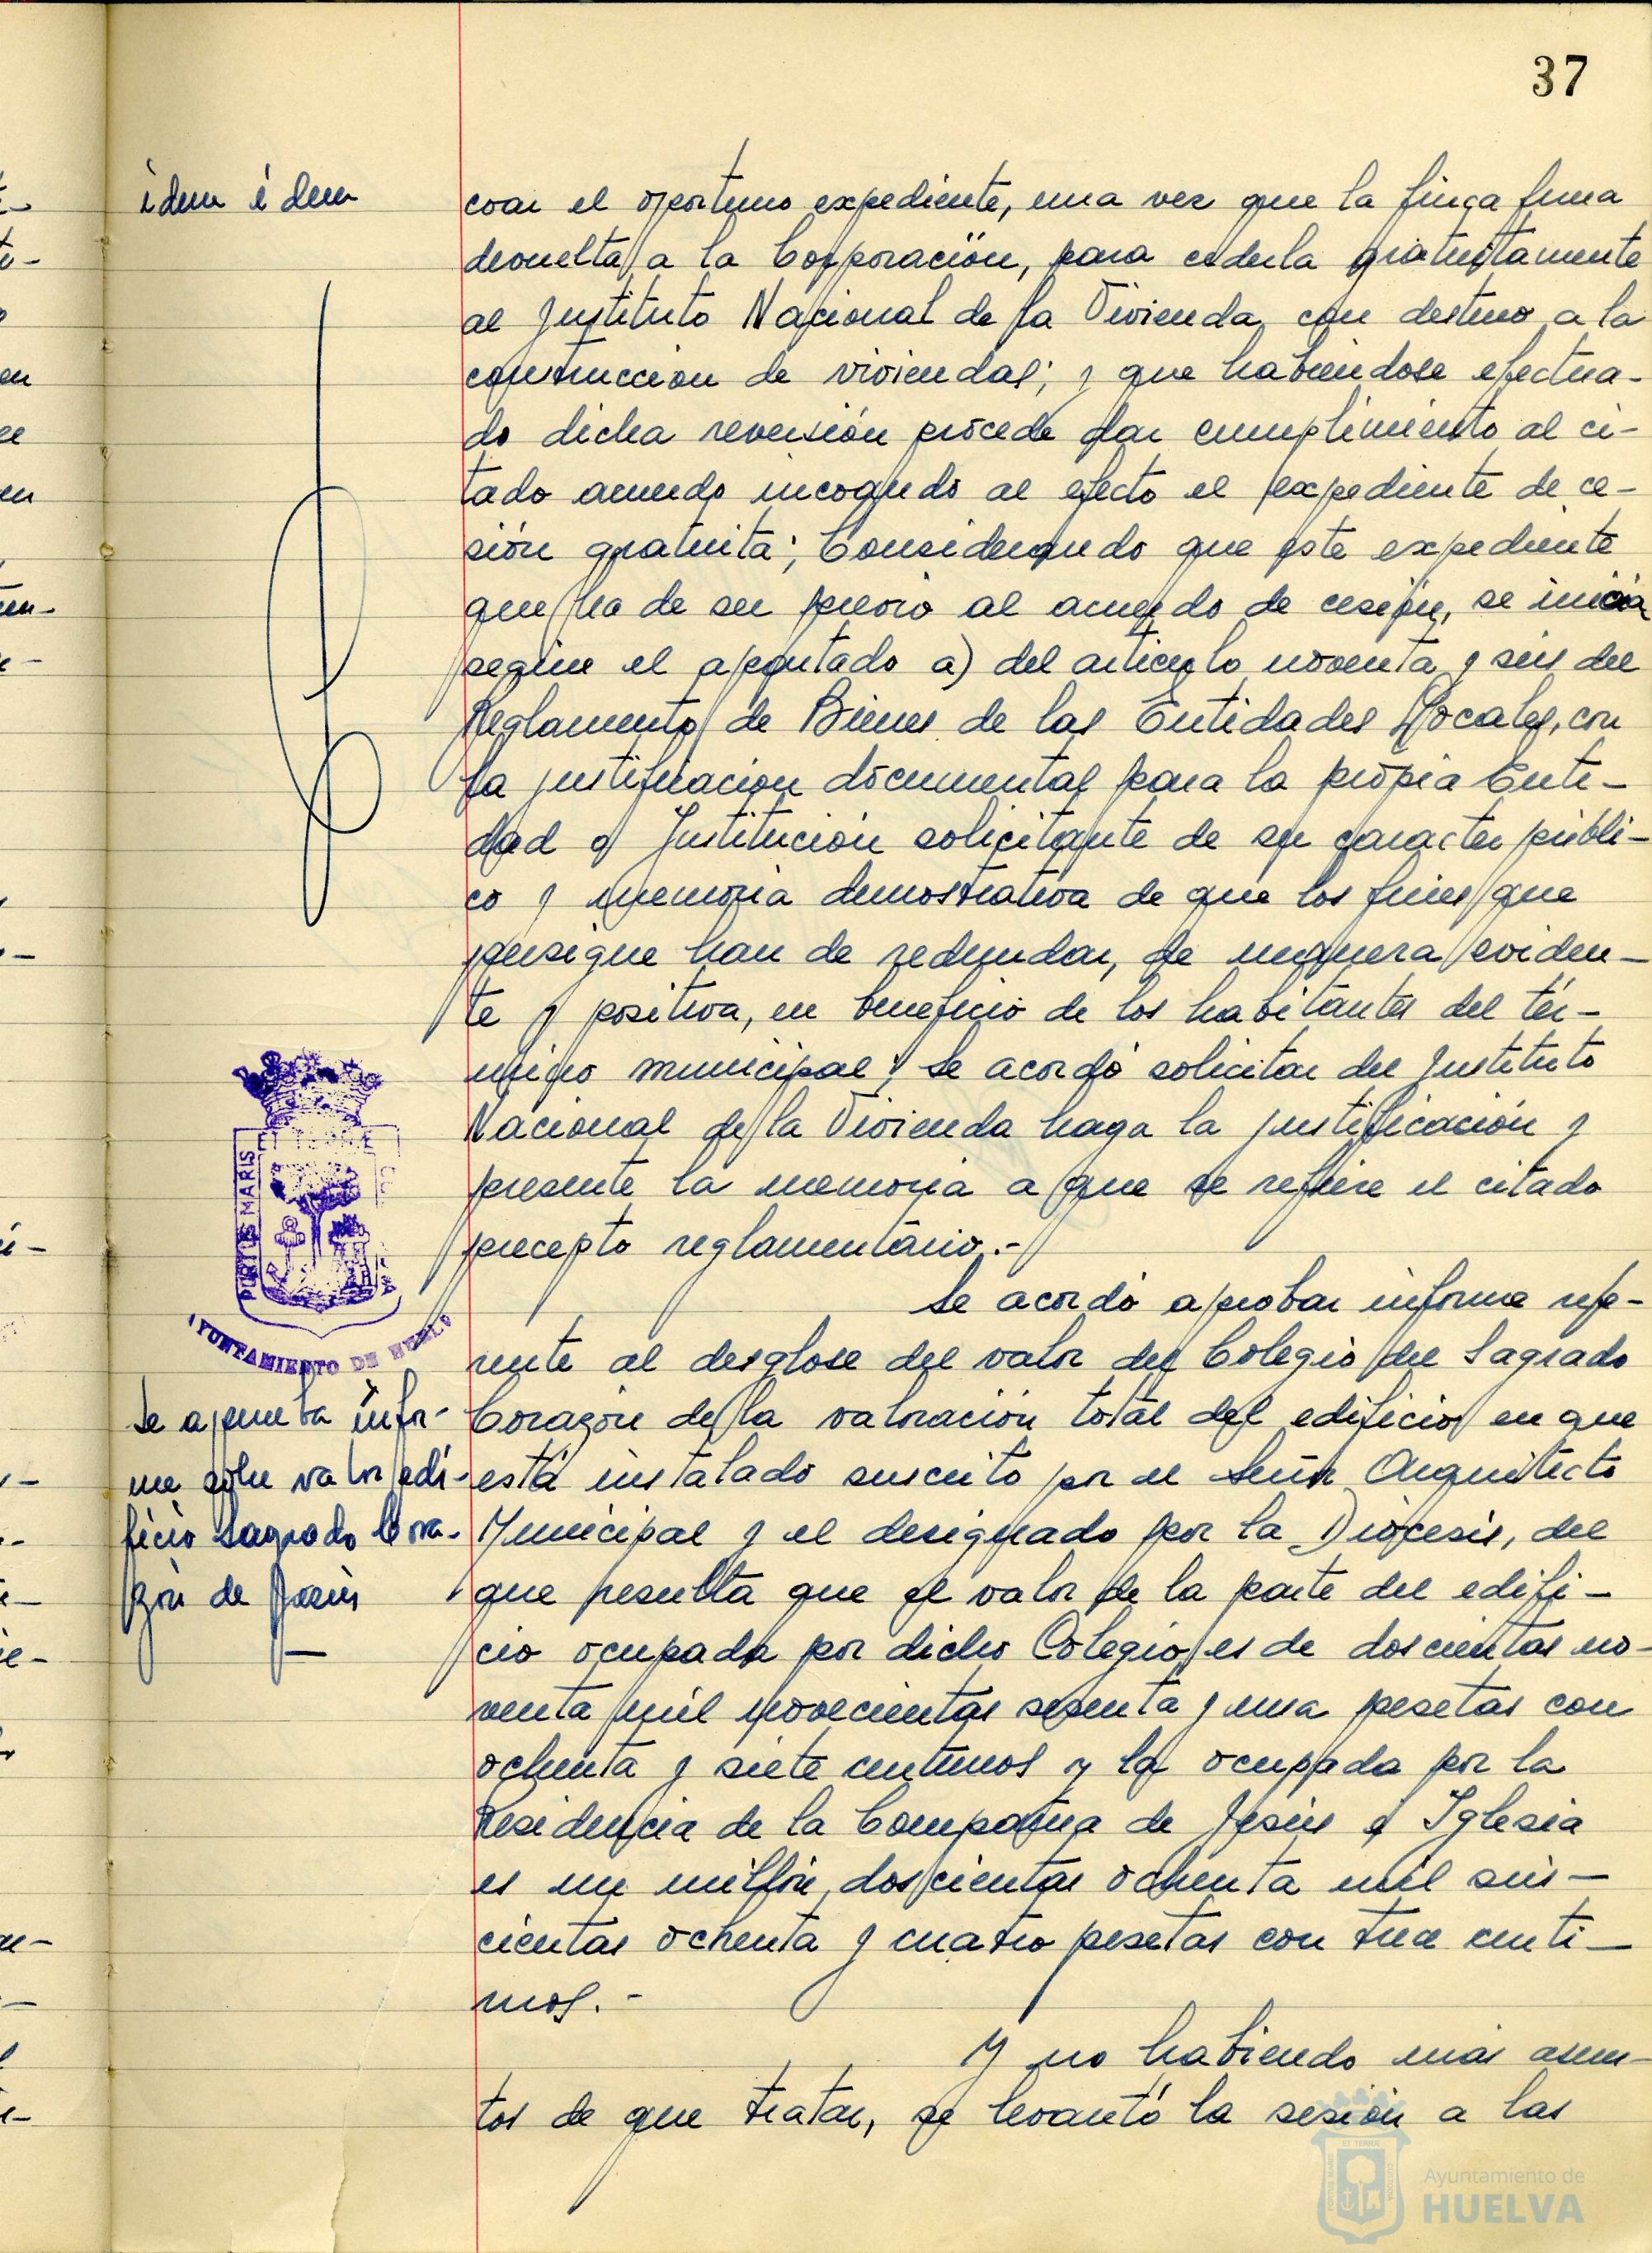 37
idem idem
coar el oportuno expediente, una vez que la finca fuera
devuelta a la Corporación, para cederla gratuitamente
al Instituto Nacional de la Vivienda, con destino a la
construccion de viviendas; y que habiendose efectua-
do dicha reversión procede dar cumplimiento al ci-
tado acuerdo incoando al efecto el expediente de ce-
sión gratuita; Considerando que este expediente
que ha de ser previo al acuerdo de cesión, se inicia
segun el apartado a) del articulo noventa y seis del
Reglamento de Bienes de las Entidades Locales, con
la justificacion documental para la propia Enti-
dad o Institución solicitante de su caracter públi-
co y memoria demostrativa de que los fines que
persigue han de redundar, de manera eviden-
te y positiva, en beneficio de los habitantes del tér-
mino municipal; Se acordó solicitar del Instituto
Nacional de la Vivienda haga la justificación y
presente la memoria a que se refiere el citado
precepto reglamentario.-
ET TERRE
PORTUS MARIS
AYUNTAMIENTO DE HUELVA
Se aprueba infor-
me sobre valor edi-
ficio Sagrado Cora-
zón de Jesús
Se acordó aprobar informe refe-
rente al desglose del valor del Colegio del Sagrado
Corazón de la valoración total del edificio en que
está instalado suscrito por el Señor Arquitecto
Municipal y el designado por la Diócesis, del
que resulta que el valor de la parte del edifi-
cio ocupada por dicho Colegio es de doscientas no-
venta mil novecientas sesenta y una pesetas con
ochenta y siete centimos y la ocupada por la
Residencia de la Compañia de Jesús e Iglesia
es un millón doscientas ochenta mil seis-
cientas ochenta y cuatro pesetas con trece centi-
mos.-
Y no habiendo más asun-
tos de que tratar, se levantó la sesión a las
Ayuntamiento de
HUELVA